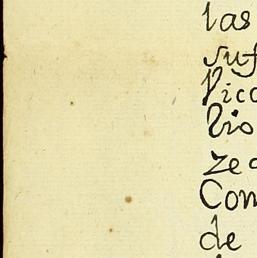 las
suf
Vico
Vio
zec
Con
de